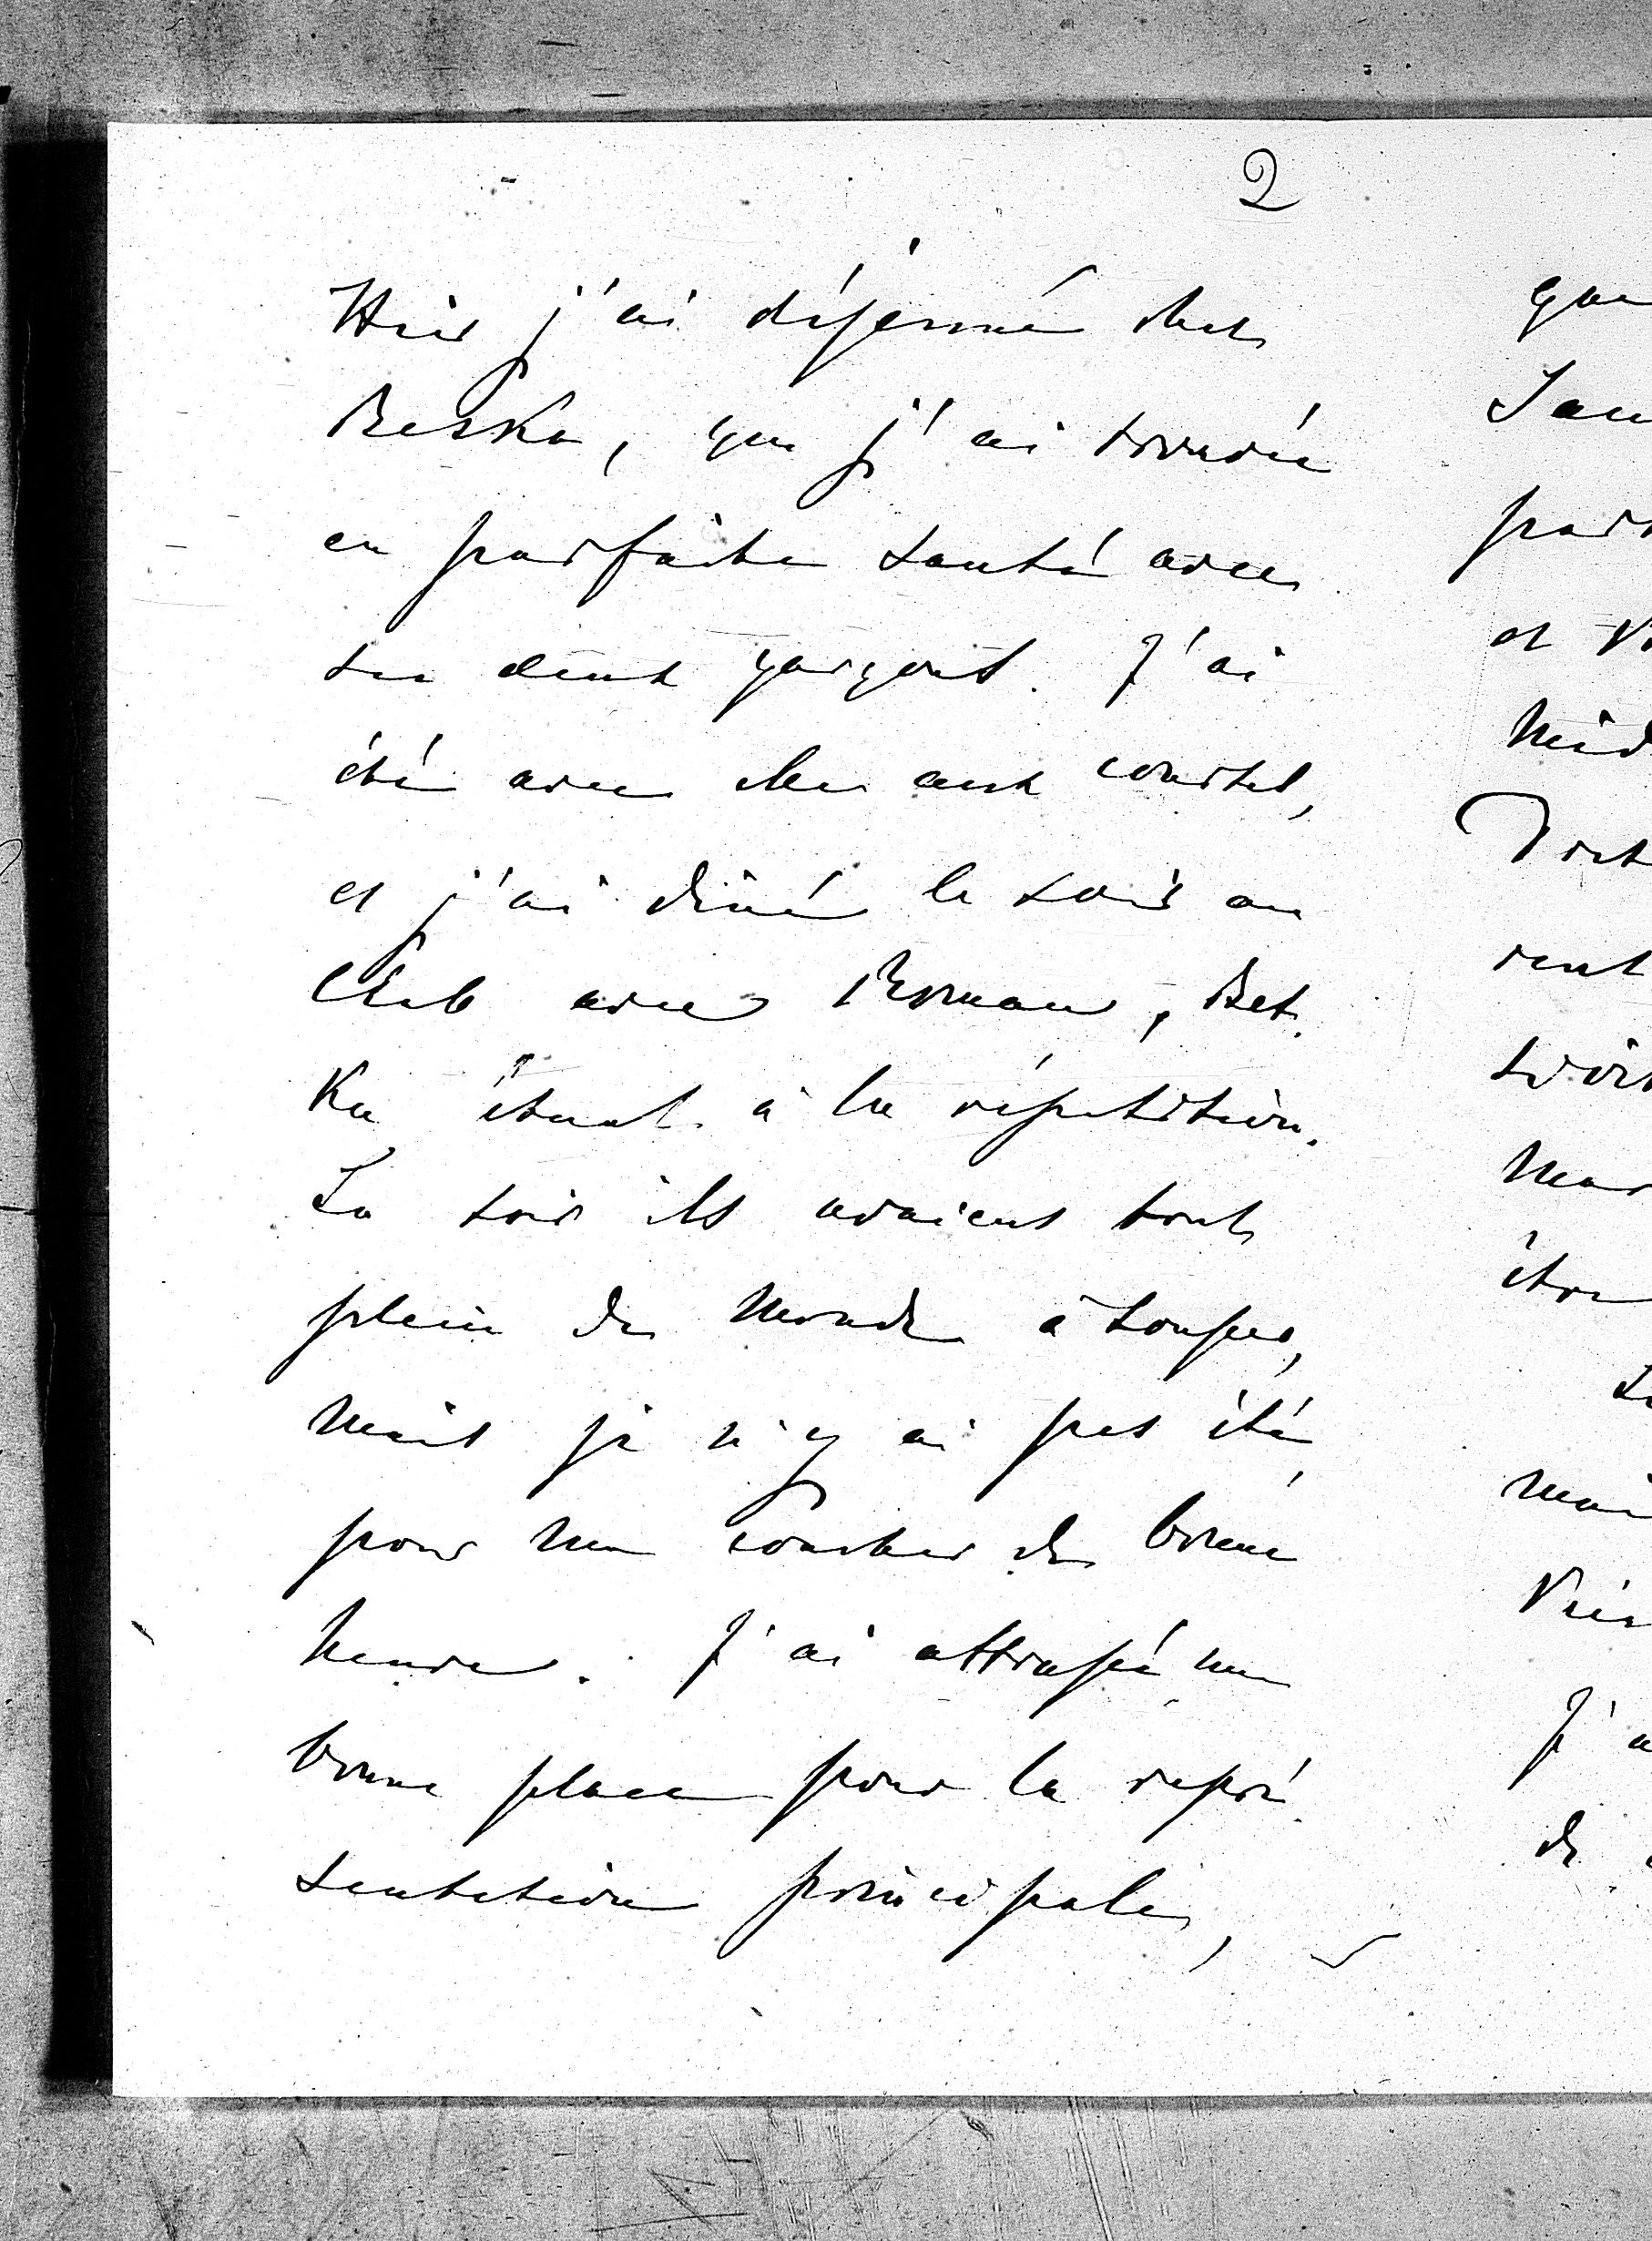 2
Hier j'ai déjeuné chez
Betka, que j'ai trouvée
en parfaite santé avec
ses deux garçons. J'ai
été avec elle aux courses,
et j'ai diné le soir au
Club avec Roman, Bet.
Ka étant à la répétition.
Le soir ils avaient tout
plein de monde à souper,
mais je n'y ai pas été,
pour me coucher de bonne
heure. J'ai attrapé une
bonne place pour la repré
sentation principale,
que
et